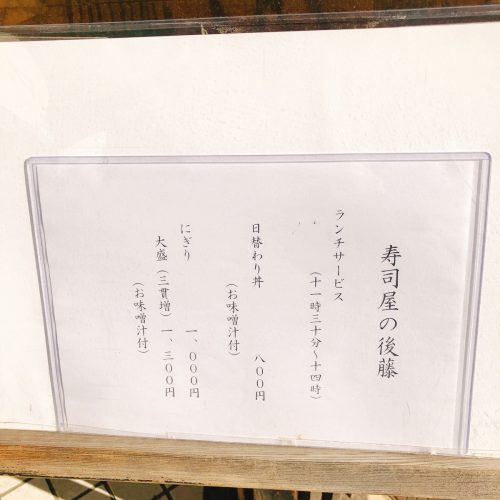 寿司屋の後藤
ランチサービス
（十一時三十分～十四時）
日替わり丼　八00円
（お味噌汁付）
にぎり　一、000円
大盛（三貫増）一、三00円
（お味噌汁付）